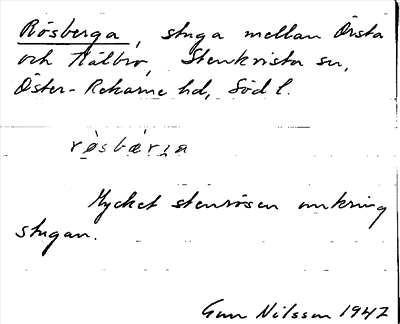 Rösberga, stuga mellan Örsta
och Hälbro, Stenkvista sn,
Öster-Rekarne hd, Södl.
rø̀sbær̨i̯a
Mycket stenrösen omkring
stugan.
Gun Nilsson 1947